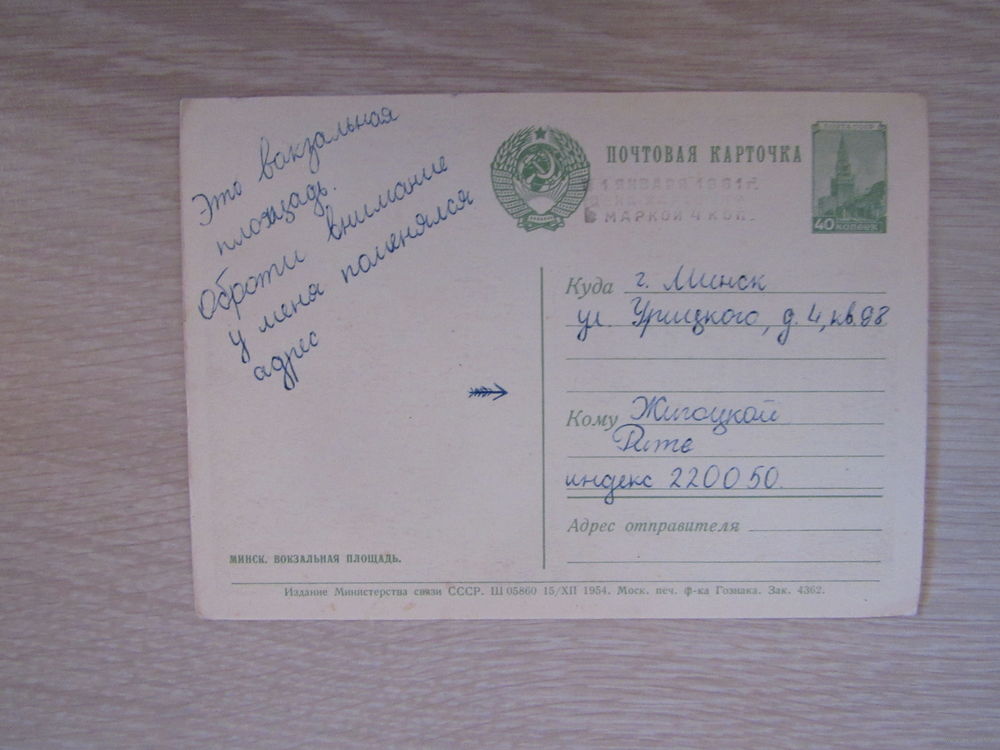 Это вокзальная
площадь.
Обрати внимание
у меня поменялся
адрес
ПОЧТОВАЯ КАРТОЧКА
1 ЯНВАРЯ 1961 г.
МАРКОЙ 4 КОП.
40 КОПЕЕК
Куда г. Минск
ул. Урицкого, д. 4, кв. 98
Кому Жигоцкой
Рите
индекс 220050.
Адрес отправителя
МИНСК. ВОКЗАЛЬНАЯ ПЛОЩАДЬ.
Издание Министерства связи СССР. Ш 05860 15/XII 1954. Моск. печ. ф-ка Гознака. Зак. 4362.